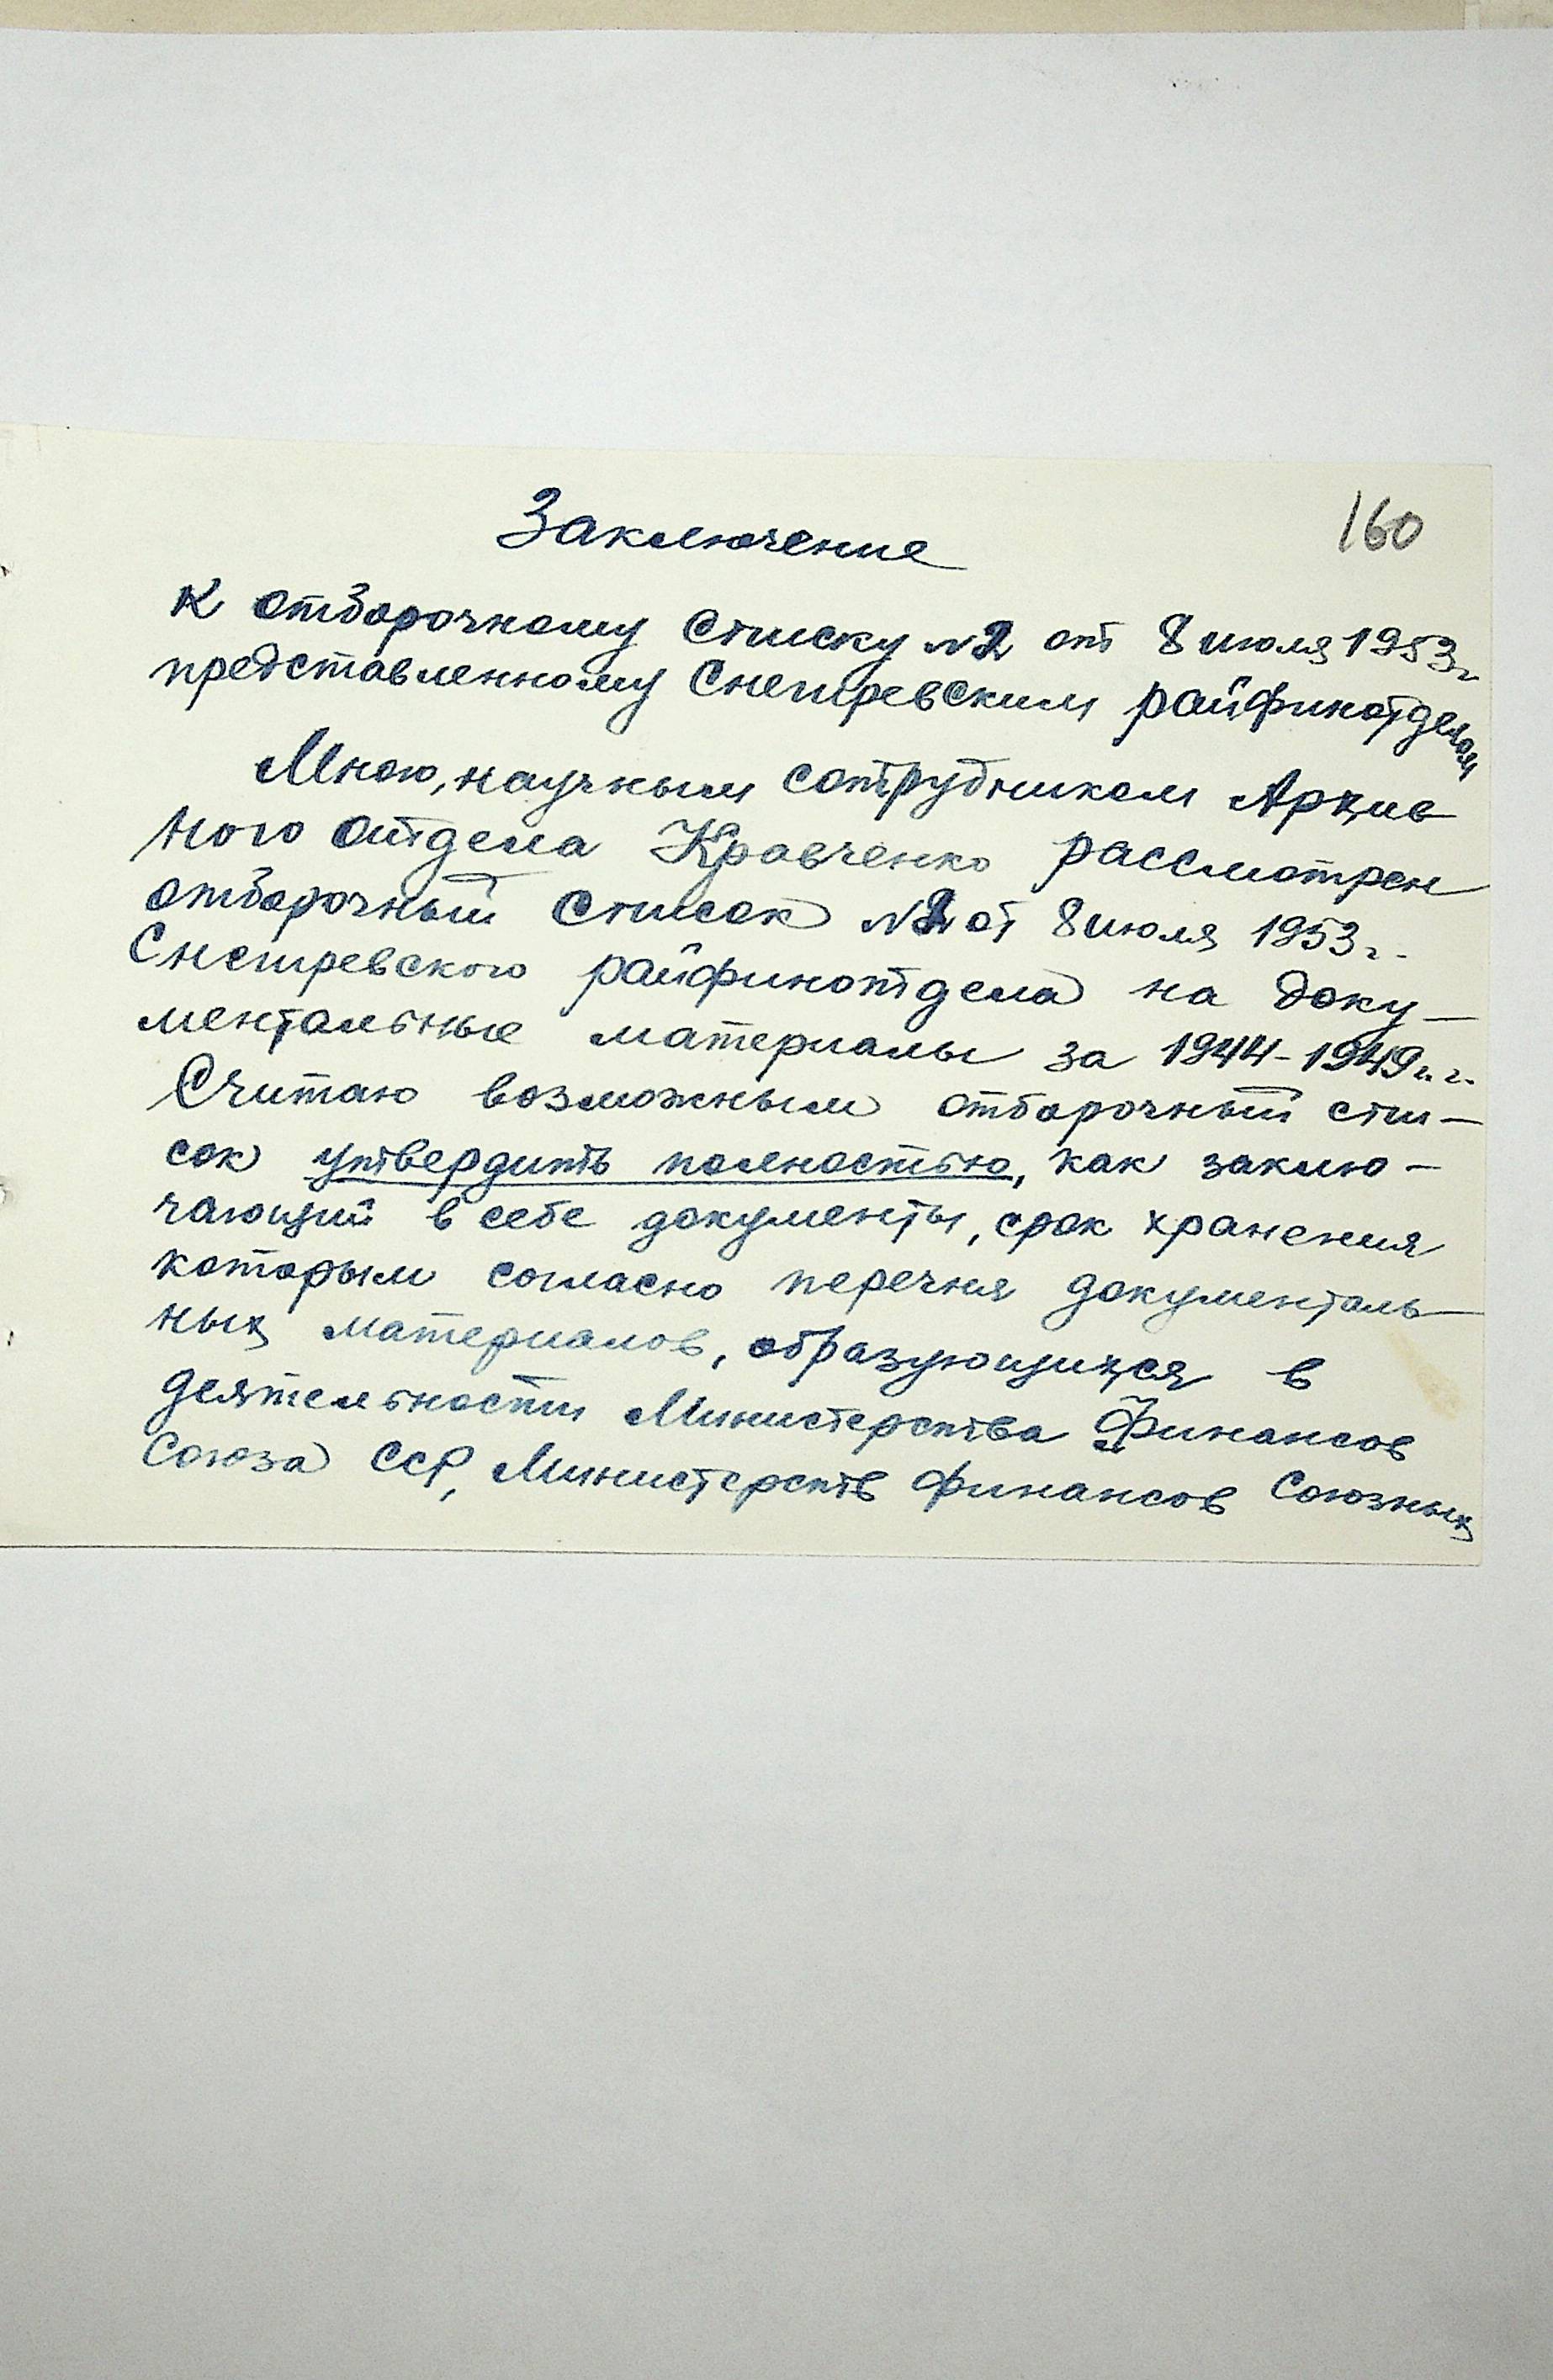 Заключение
160
к отборочному списку №2 от 8 июля 1953г.
представленному Снегиревским райфинотделом
Мною, научным сотрудником Архив
ного отдела Кравченко рассмотрен
отборочный список №2 от 8 июля 1953г.
Снегиревского райфинотдела на доку-
ментальные материалы за 1944-1949г.г.
Считаю возможным отборочный спи-
сок утвердить полностью, как заклю-
чающий в себе документы, срок хранения
которым согласно перечня документаль-
ных материалов, образующихся в
деятельности Министерства Финансов
Союза ССР, Министерств финансов Союзных